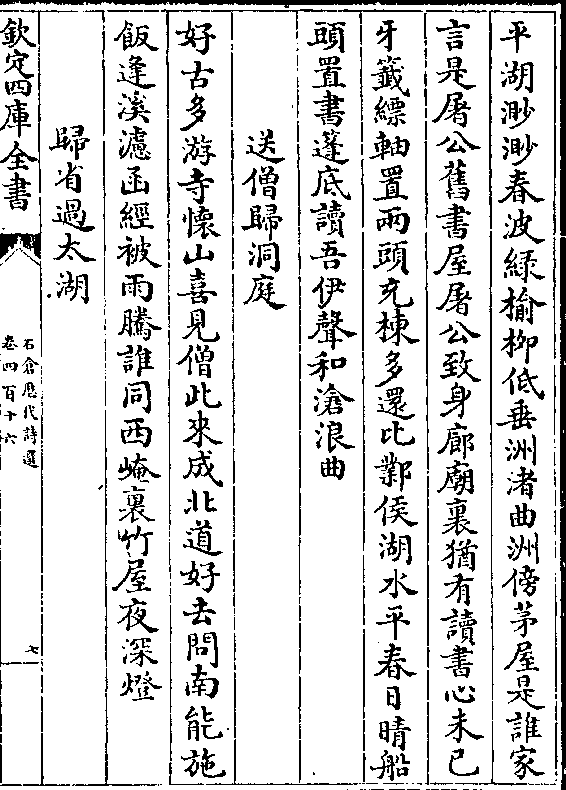 平湖渺渺春波緑榆栁低垂洲渚曲洲傍茅屋是誰家
言是屠公舊書屋屠公致身廊廟裏猶有讀書心未已
牙籤縹軸置兩頭充棟多還比鄴侯湖水平春日晴船
頭置書蓬底讀吾伊聲和滄浪曲
送僧歸洞庭
好古多游寺懷山喜見僧此來成北道好去問南能施
飯逢溪濾函經被雨騰誰同西崦裏竹屋夜深燈
歸省過太湖
欽定四庫全書
石倉歴代詩選
卷四百十六
七